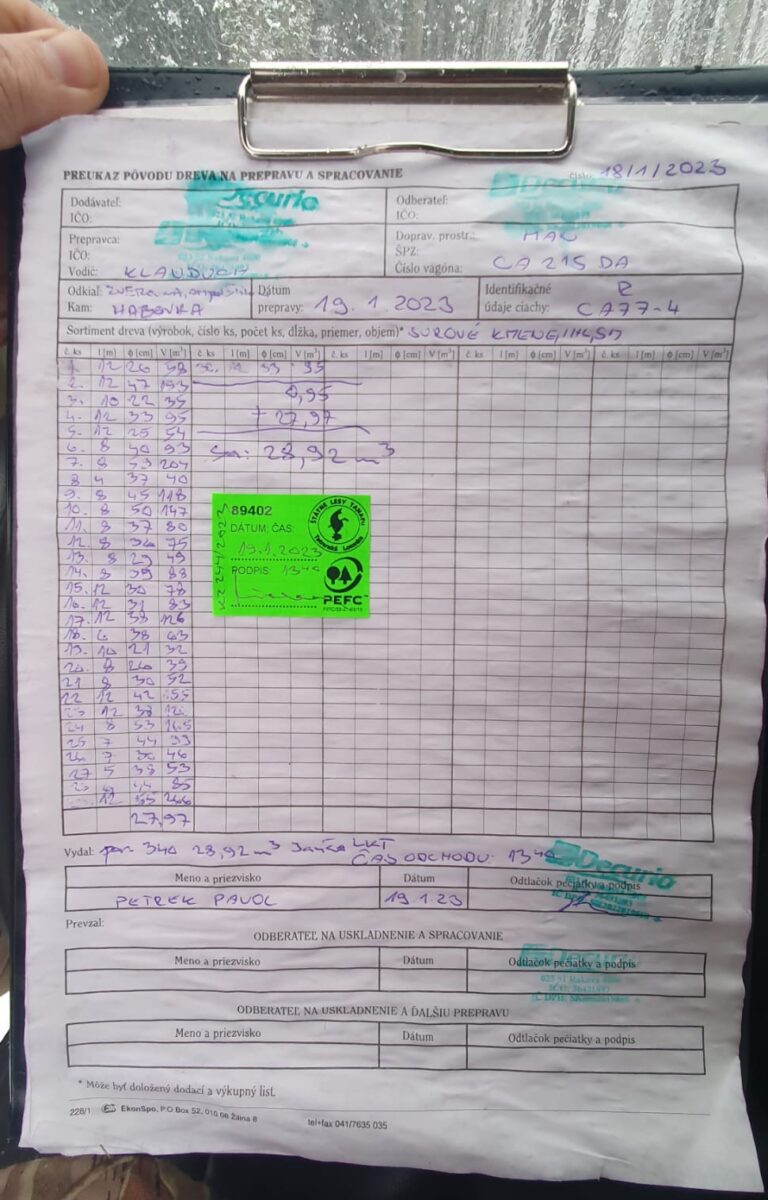 PREUKAZ PÔVODU DREVA NA PREPRAVU A SPRACOVANIE číslo: 18/1/2023
Dodávateľ: Decurio Odberateľ: Decurio
IČO: IČO:
Prepravca: Doprav. prostr.: MAN
IČO: ŠPZ:
Vodič: Číslo vagóna: CA 215 DA
Odkiaľ: ZVEROVKA, Dátum Identifikačné R
Kam: HABOVKA prepravy: 19.1.2023 údaje ciachy: CA77-4
Sortiment dreva (výrobok, číslo ks, počet ks, dĺžka, priemer, objem)* SUROVÉ KMENE, IHL, SM
č. ks l [m] ϕ [cm] V [m³] č. ks l [m] ϕ [cm] V [m³] č. ks l [m] ϕ [cm] V [m³] č. ks l [m] ϕ [cm] V [m³] č. ks l [m] ϕ [cm] V [m³]
1. 12 26 58 30. 12 33 95
2. 12 47 193
0,95
3. 10 22 35
+ 27,97
4. 12 33 95
5. 12 25 54
6. 8 40 93 28,92 m³
7. 8 53
8 4 37 40
9. 8 45 118
10. 8 50 147
11. 8 37 80
12. 8 36 75
13. 8 29 49
14. 8 39 88
15. 12 30 78
16. 12 31 83
17. 12 38 126
18. 6 38 63
19. 10 21 32
20. 8 26 39
21 8 30 52
22 12 42 155
23 12 38
24 8 53 165
25 7 44 99
26 7 30 46
27 5 38 53
44 85
12 55 266
27,97
89402
DÁTUM; ČAS:
19.1.2023
PODPIS 13 40
ŠTÁTNE LESY TANAPU
Tatranská Lomnica
PEFC
Vydal: por. 340 28,92 m³ LKT
ČAS ODCHODU: 13 40
Decurio
Meno a priezvisko Dátum Odtlačok pečiatky a podpis
PETREK PAVOL 19 1.23
Prevzal:
ODBERATEĽ NA USKLADNENIE A SPRACOVANIE
Meno a priezvisko Dátum Odtlačok pečiatky a podpis
ODBERATEĽ NA USKLADNENIE A ĎALŠIU PREPRAVU
Meno a priezvisko Dátum Odtlačok pečiatky a podpis
* Môže byť doložený dodací a výkupný list.
226/1 EkonSpo, P.O Box 52, 010 08 Žilina 8 tel+fax 041/7635 035